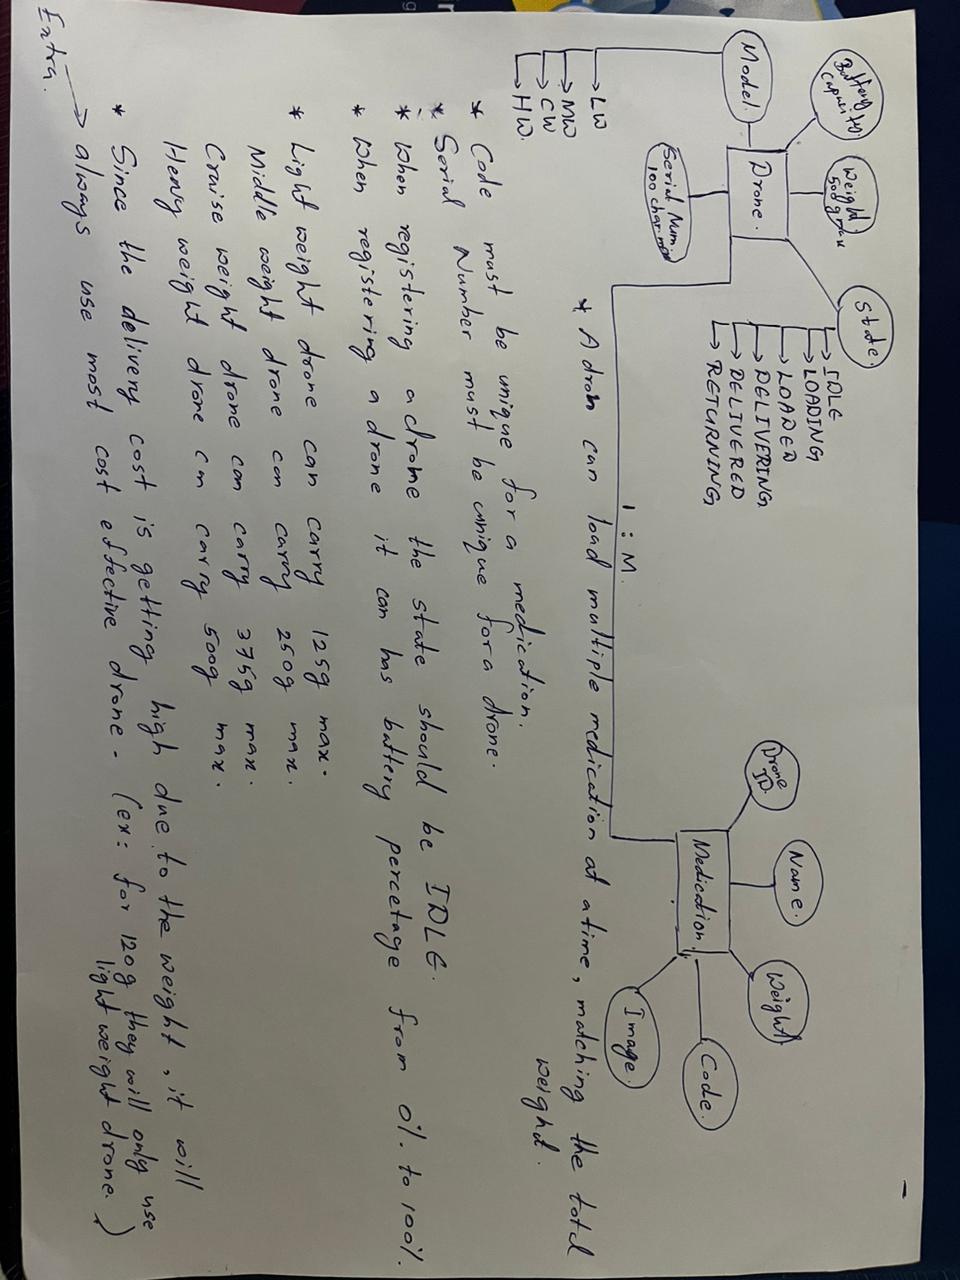 Battery
Capacity.
Weight
500g max
State.
IDLE
LOADING
LOADED
DELIVERING
DELIVERED
RETURNING
Model.
Drone.
Serial Num.
100 char. max
LW
MW
CW
HW.
Drone
ID.
Name.
Weight
Medication.
Code.
Image.
1 : M.
* A dron can load multiple medication at a time, matching the total
weight.
* Code must be unique for a medication.
* Serial Number must be unique for a drone.
* When registering a drone the state should be IDLE.
* When registering a drone it can has battery percetage from 0%. to 100%.
* Light weight drone can carry 125g max.
Middle weight drone can carry 250g max.
Cruise weight drone can carry 375g max.
Heavy weight drone can carry 500g max.
* Since the delivery cost is getting high due to the weight, it will
always use most cost effective drone. (ex: for 120g they will only use
light weight drone.)
Extra.